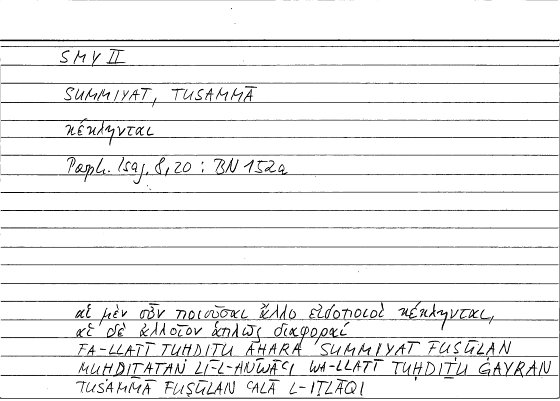 SMY II
SUMMIYAT, TUSAMMĀ
κέκληνται
Porph. Isag. 8,20 : BN 152a
αἱ μὲν οὖν ποιοῦσαι ἄλλο εἰδοποιοὶ κέκληνται,
αἱ δὲ ἀλλοῖον ἁπλῶς διαφοραί
FA-LLATĪ TUḤDIṮU ĀḪARA SUMMIYAT FUṢŪLAN
MUḤDIṮATAN LI-L-ANWĀʿI WA-LLATĪ TUḤDIṮU ĠAYRAN
TUSAMMĀ FUṢŪLAN ʿALĀ L-IṬLĀQI